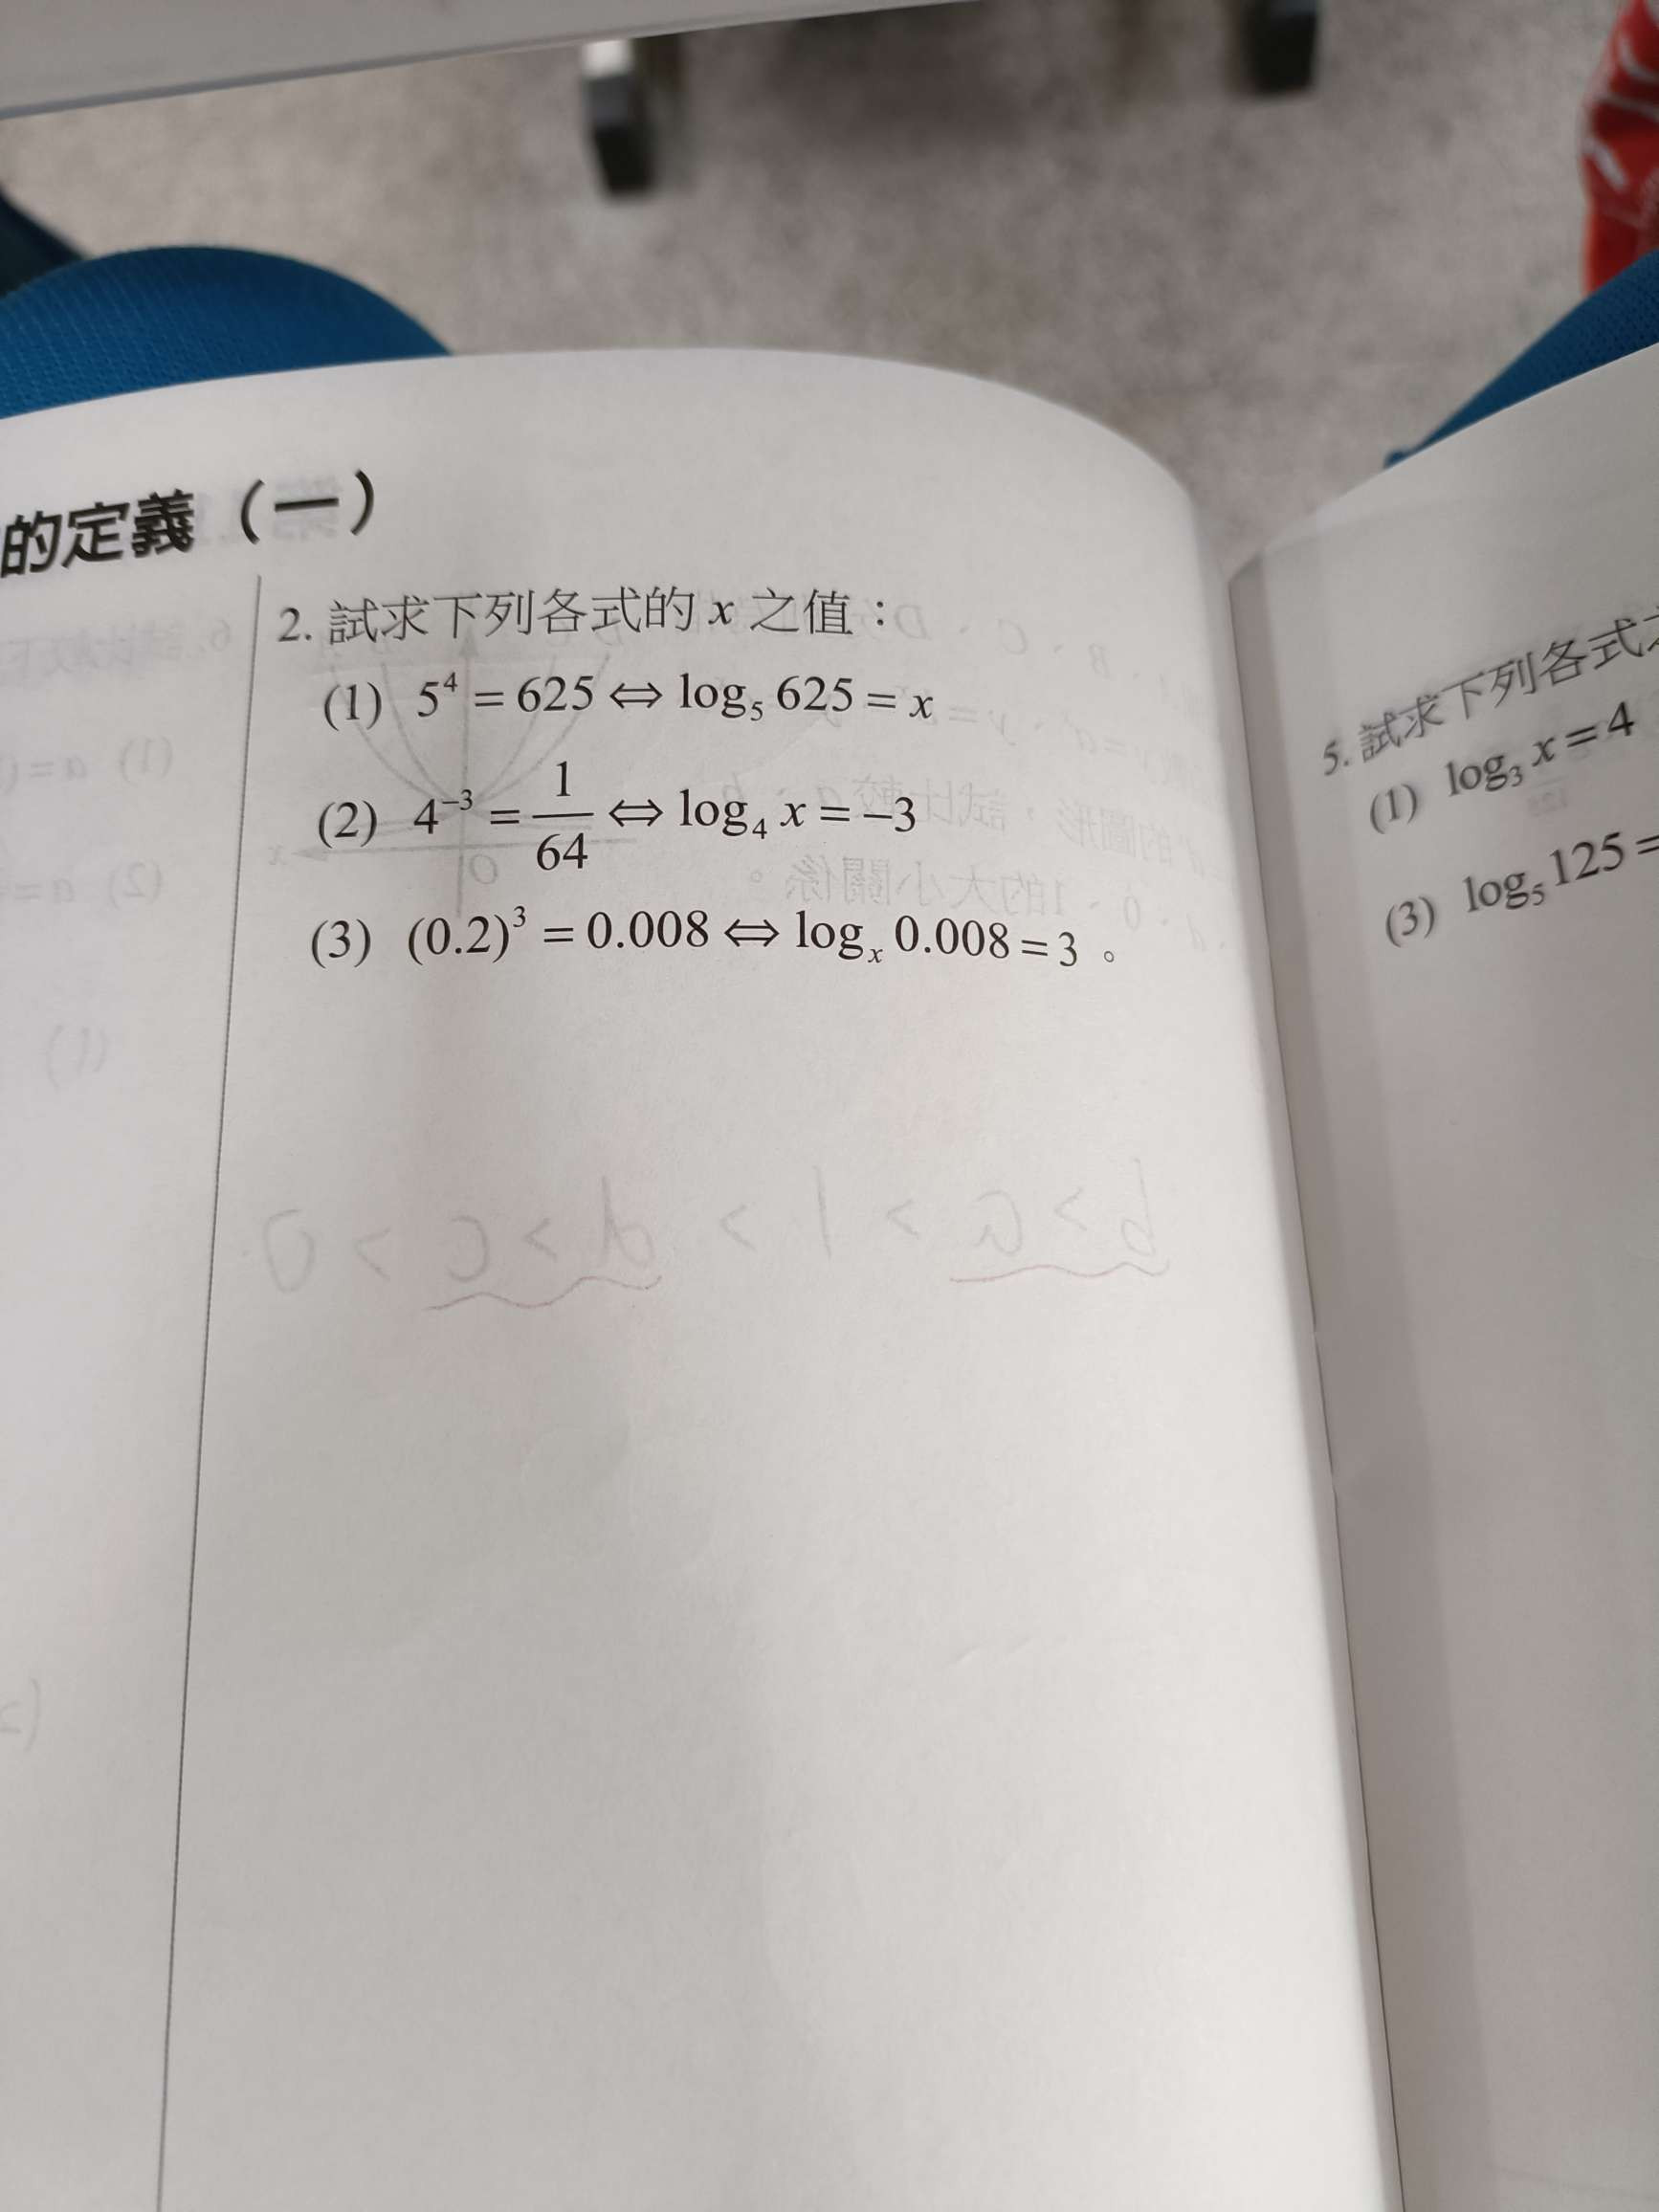 的定義（一）
2. 試求下列各式的 x 之值：
(1) 5⁴ = 625 ⇔ log₅ 625 = x
(2) 4⁻³ = 1/64 ⇔ log₄ x = –3
(3) (0.2)³ = 0.008 ⇔ logₓ 0.008 = 3 。
5. 試求下列各式
(1) log₃ x = 4
(3) log₅ 125 =